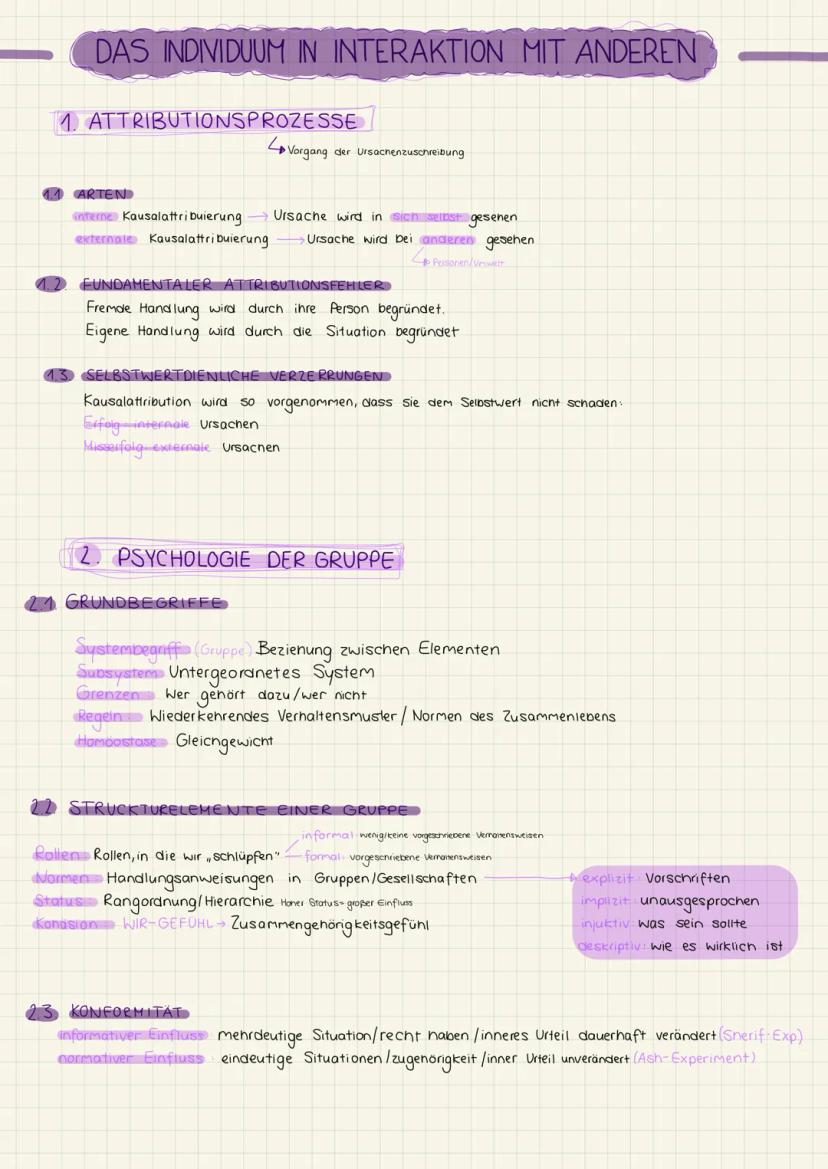 DAS INDIVIDUUM IN INTERAKTION MIT ANDEREN
1. ATTRIBUTIONSPROZESSE
↳ Vorgang der Ursachenzuschreibung
1.1 ARTEN
interne Kausalattribuierung → Ursache wird in sich selbst gesehen
externale Kausalattribuierung → Ursache wird bei anderen gesehen
↳ Personen/Umwelt
1.2. FUNDAMENTALER ATTRIBUTIONSFEHLER
Fremde Handlung wird durch ihre Person begründet.
Eigene Handlung wird durch die Situation begründet
1.3. SELBSTWERTDIENLICHE VERZERRUNGEN
Kausalattribution wird so vorgenommen, dass sie dem Selbstwert nicht schaden:
Erfolg: internale Ursachen
Misserfolg: externale Ursachen
2. PSYCHOLOGIE DER GRUPPE
2.1. GRUNDBEGRIFFE
Systembegriff (Gruppe): Beziehung zwischen Elementen
Subsystem: Untergeordnetes System
Grenzen: Wer gehört dazu/wer nicht
Regeln: Wiederkehrendes Verhaltensmuster/Normen des Zusammenlebens
Homöostase: Gleichgewicht
2.2 STRUCKTURELEMENTE EINER GRUPPE
informal: wenig/keine vorgeschriebene Verhaltensweisen
Rollen: Rollen, in die wir „schlüpfen" formal: vorgeschriebene Verhaltensweisen
Normen: Handlungsanweisungen in Gruppen/Gesellschaften → explizit: Vorschriften
Status: Rangordnung/Hierarchie Hoher Status= großer Einfluss implizit: unausgesprochen
Kohäsion: WIR-GEFÜHL → Zusammengehörigkeitsgefühl injuktiv: was sein sollte
deskriptiv: wie es wirklich ist
2.3 KONFORMITÄT
informativer Einfluss: mehrdeutige Situation/recht haben/inneres Urteil dauerhaft verändert (Sherif-Exp)
normativer Einfluss: eindeutige Situationen/zugehörigkeit/inner Urteil unverändert (Ash-Experiment)